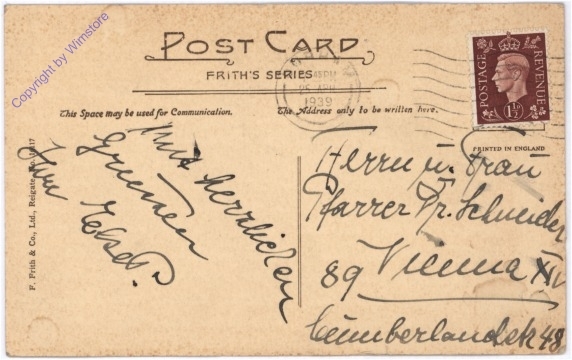 Copyright by Wimstore
POST CARD
FRITH'S SERIES
This Space may be used for Communication.
The Address only to be written here.
1939
POSTAGE
REVENUE
1½D
PRINTED IN ENGLAND
F. Frith & Co., Ltd., Reigate.
mit herzlichen
Grüssen
Herrn u. Frau
Pfarrer Dr. Schneider
89 Vienna XIV
Cumberlandstr 48